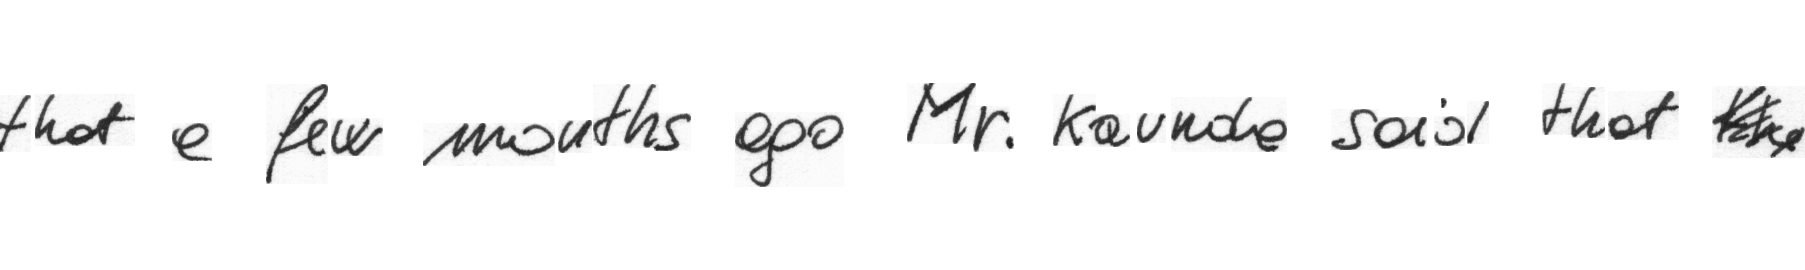 that a few months ago Mr. Kaunda said that